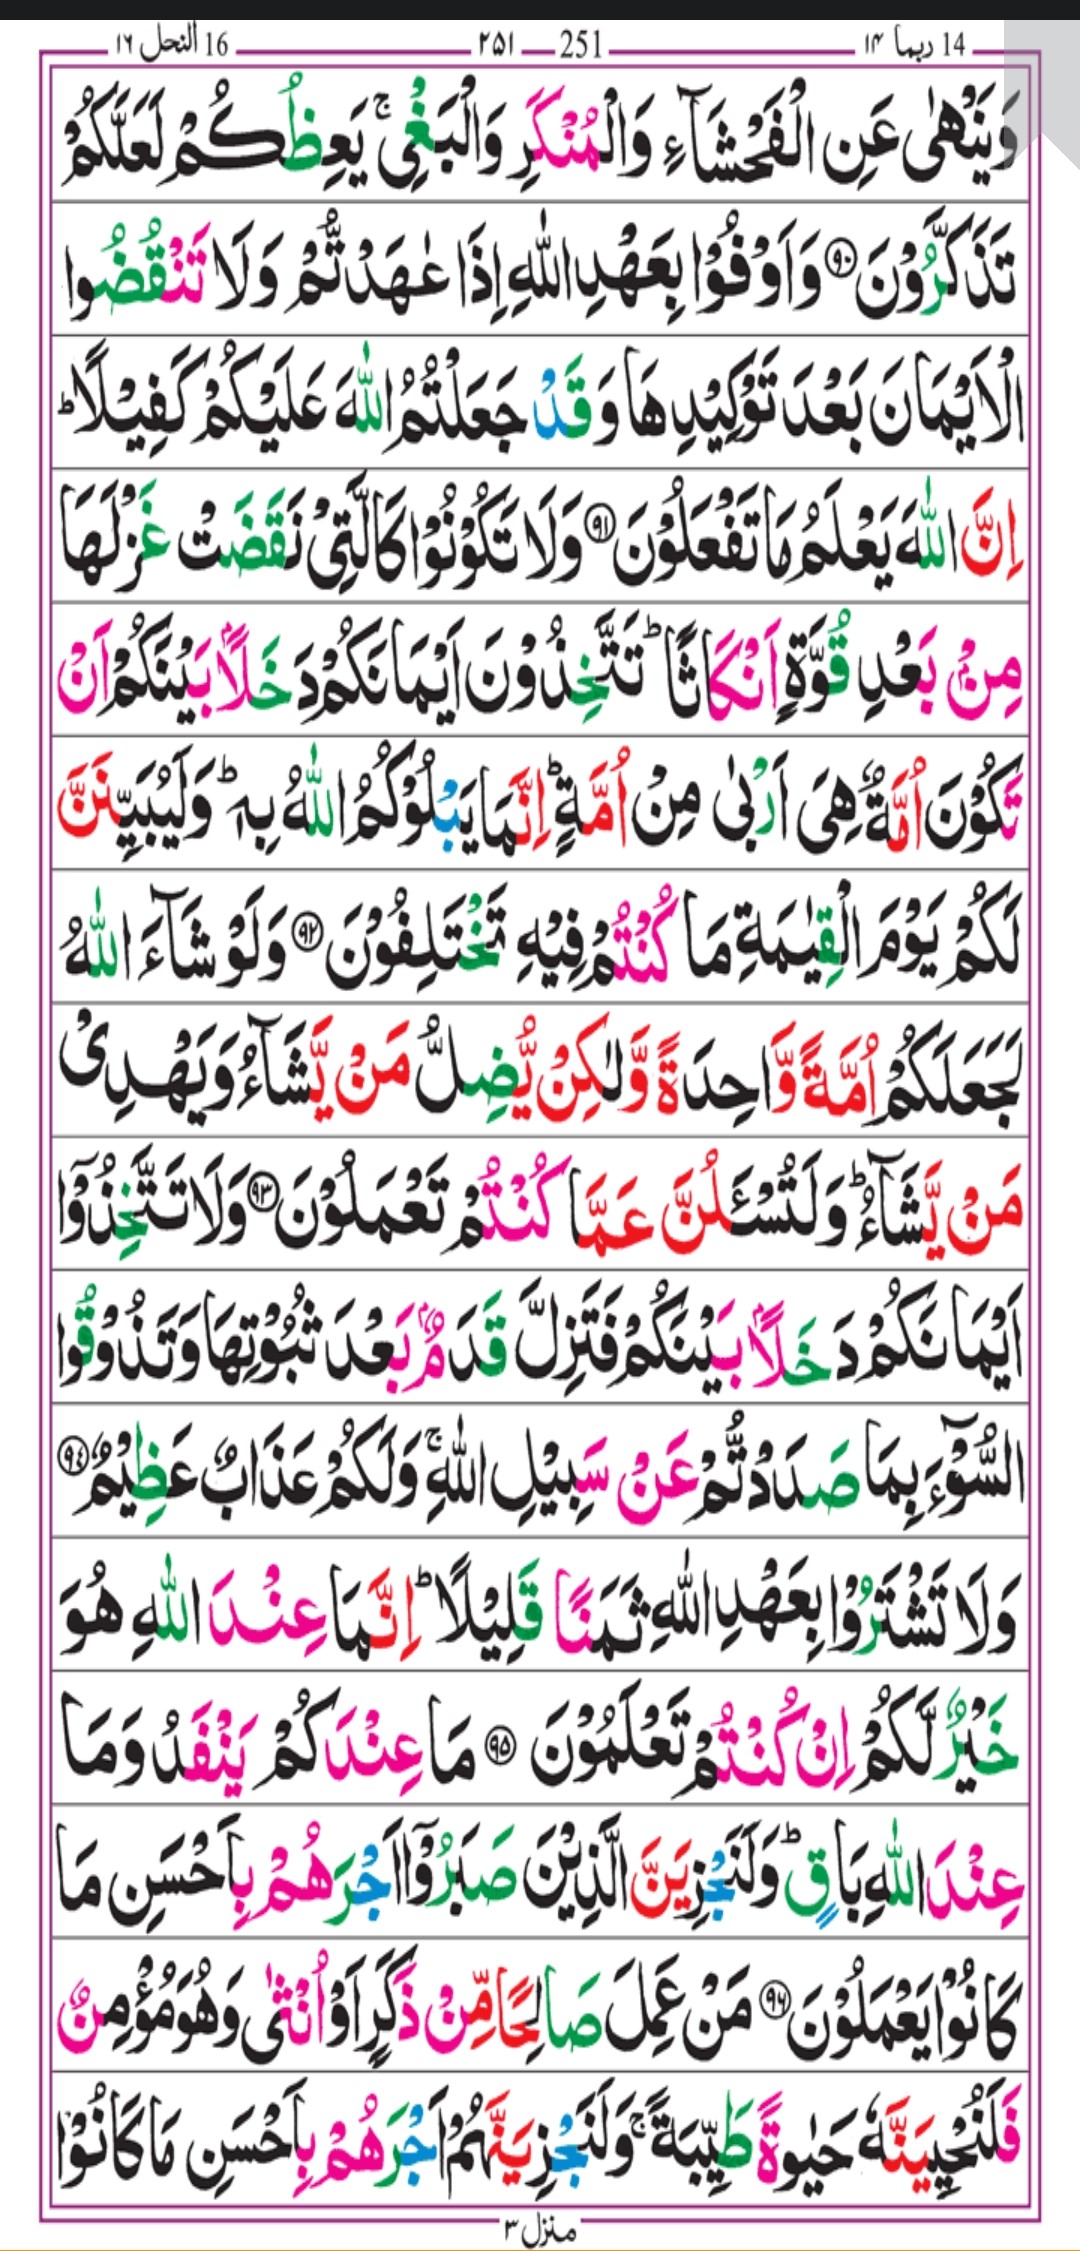 14 ربما ۱۴ 251 ۲۵۱ 16 النحل ۱۶
وَيَنْهٰى عَنِ الْفَحْشَآءِ وَالْمُنْكَرِ وَالْبَغْيِ ۚ يَعِظُكُمْ لَعَلَّكُمْ
تَذَكَّرُوْنَ ۹۰ وَاَوْفُوْا بِعَهْدِ اللّٰهِ اِذَا عٰهَدْتُّمْ وَلَا تَنْقُضُوا
الْاَيْمَانَ بَعْدَ تَوْكِيْدِهَا وَقَدْ جَعَلْتُمُ اللّٰهَ عَلَيْكُمْ كَفِيْلًا ؕ
اِنَّ اللّٰهَ يَعْلَمُ مَا تَفْعَلُوْنَ ۹۱ وَلَا تَكُوْنُوْا كَالَّتِيْ نَقَضَتْ غَزْلَهَا
مِنْۢ بَعْدِ قُوَّةٍ اَنْكَاثًا ؕ تَتَّخِذُوْنَ اَيْمَانَكُمْ دَخَلًاۢ بَيْنَكُمْ اَنْ
تَكُوْنَ اُمَّةٌ هِيَ اَرْبٰى مِنْ اُمَّةٍ ؕ اِنَّمَا يَبْلُوْكُمُ اللّٰهُ بِهٖ ؕ وَلَيُبَيِّنَنَّ
لَكُمْ يَوْمَ الْقِيٰمَةِ مَا كُنْتُمْ فِيْهِ تَخْتَلِفُوْنَ ۹۲ وَلَوْ شَآءَ اللّٰهُ
لَجَعَلَكُمْ اُمَّةً وَّاحِدَةً وَّلٰكِنْ يُّضِلُّ مَنْ يَّشَآءُ وَيَهْدِيْ
مَنْ يَّشَآءُ ؕ وَلَتُسْـَٔلُنَّ عَمَّا كُنْتُمْ تَعْمَلُوْنَ ۹۳ وَلَا تَتَّخِذُوْٓا
اَيْمَانَكُمْ دَخَلًاۢ بَيْنَكُمْ فَتَزِلَّ قَدَمٌۢ بَعْدَ ثُبُوْتِهَا وَتَذُوْقُوا
السُّوْٓءَ بِمَا صَدَدْتُّمْ عَنْ سَبِيْلِ اللّٰهِ ۚ وَلَكُمْ عَذَابٌ عَظِيْمٌ ۹۴
وَلَا تَشْتَرُوْا بِعَهْدِ اللّٰهِ ثَمَنًا قَلِيْلًا ؕ اِنَّمَا عِنْدَ اللّٰهِ هُوَ
خَيْرٌ لَّكُمْ اِنْ كُنْتُمْ تَعْلَمُوْنَ ۹۵ مَا عِنْدَكُمْ يَنْفَدُ وَمَا
عِنْدَ اللّٰهِ بَاقٍ ؕ وَلَنَجْزِيَنَّ الَّذِيْنَ صَبَرُوْٓا اَجْرَهُمْ بِاَحْسَنِ مَا
كَانُوْا يَعْمَلُوْنَ ۹۶ مَنْ عَمِلَ صَالِحًا مِّنْ ذَكَرٍ اَوْ اُنْثٰى وَهُوَ مُؤْمِنٌ
فَلَنُحْيِيَنَّهٗ حَيٰوةً طَيِّبَةً ۚ وَلَنَجْزِيَنَّهُمْ اَجْرَهُمْ بِاَحْسَنِ مَا كَانُوْا
منزل ۳